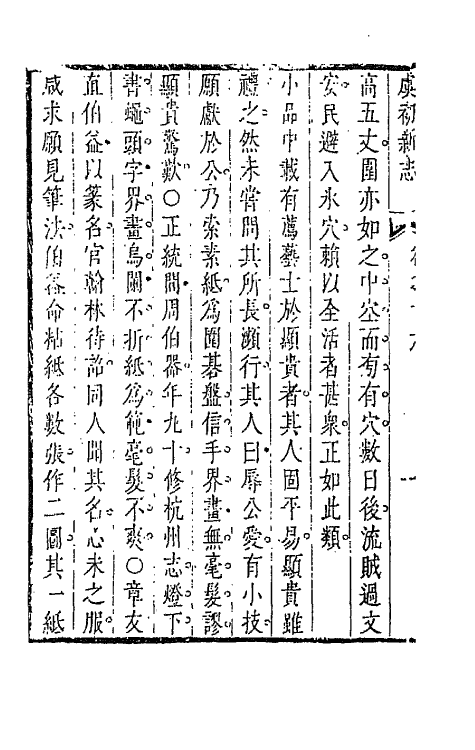 虞初新志
高五丈圍亦如之中空而旁有穴數日後流賊過文
安民避入氷穴賴以全活者甚衆正如此類
小品中載有薦藝士於顯貴者其人固平易顯貴雖
禮之然未嘗問其所長瀕行其人曰辱公愛有小技
願獻於公乃索素紙爲圍碁盤信手界畫無毫髮謬
顯貴驚歎○正統間周伯器年九十修杭州志燈下
書蠅頭字界畫烏闌不折紙爲範毫髮不爽○章友
直伯益以篆名官翰林待詔同人聞其名心未之服
咸求願見筆法伯益命粘紙各數張作二圖其一紙